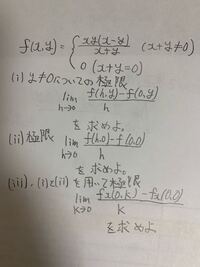 f(x,y) = { xy(x-y)/x+y (x+y≠0)
0 (x+y=0)
(i) y≠0についての極限
lim h→0 f(h,y)-f(0,y)/h
を求めよ。
(ii) 極限 lim h→0 f(h,0)-f(0,0)/h
を求めよ。
(iii)・(i)と(ii)を用いて極限
lim k→0 fx(0,k)-fx(0,0)/k
を求めよ